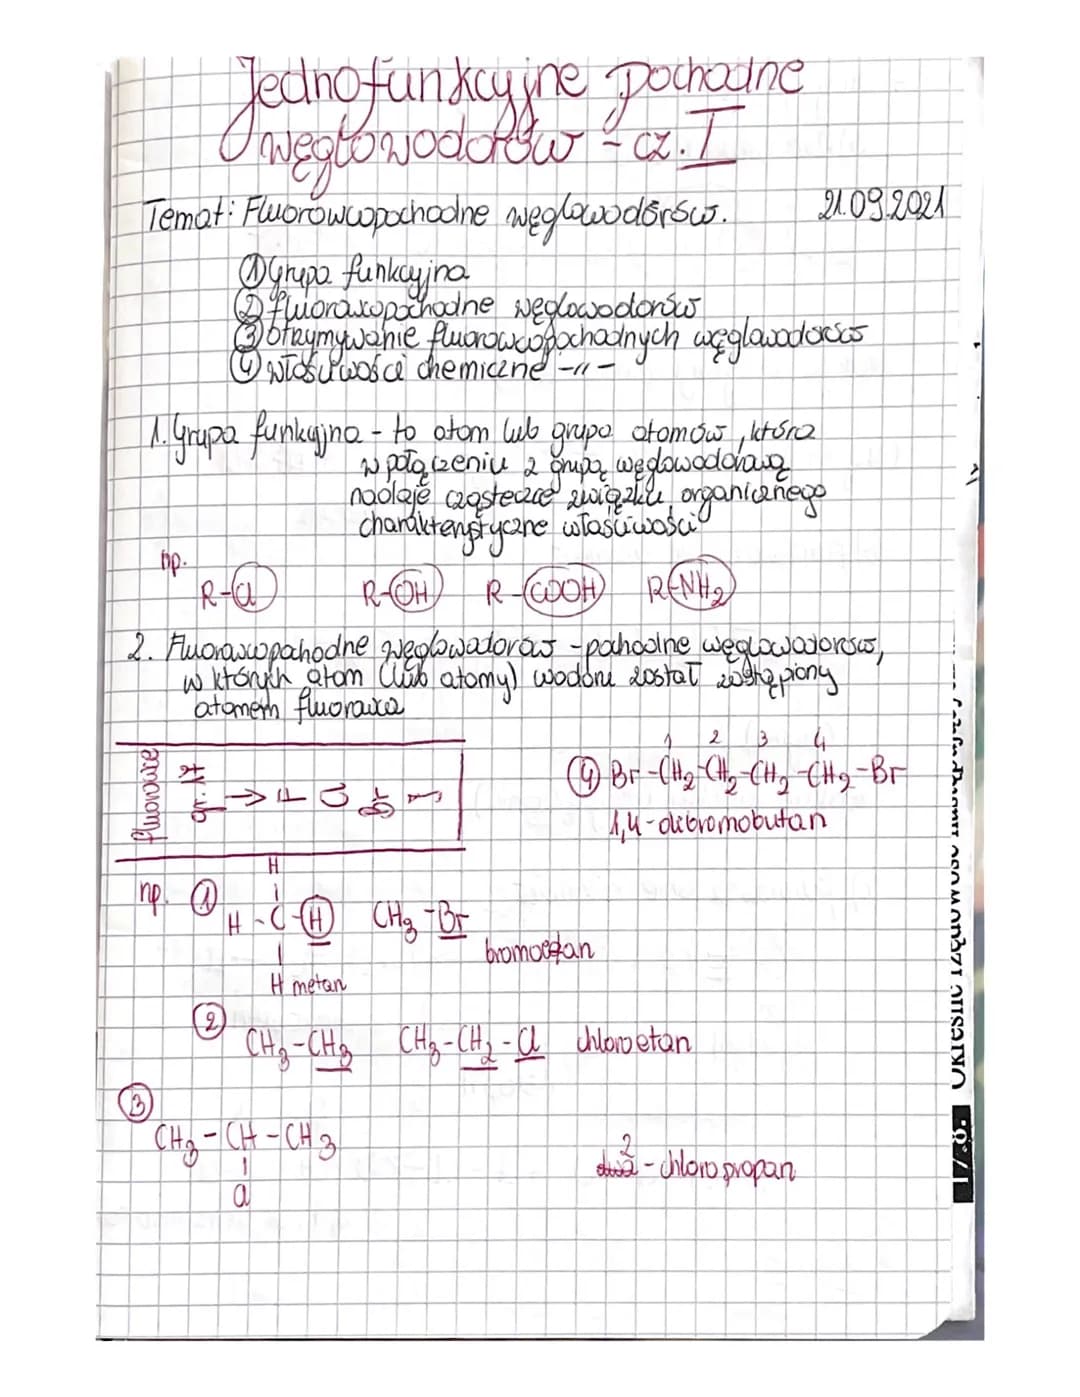 Jednofunkcyjne pochodne
węglowodorów - cz. I
Temat: Fluorowcopochodne węglowodorów. 21.09.2021
① Grupa funkcyjna
② fluorowcopochodne węglowodorów
③ otrzymywanie fluorowcopochodnych węglowodorów
④ właściwości chemiczne -11-
1. Grupa funkcyjna - to atom lub grupa atomów, która
w połączeniu z grupą węglowodorową
nadaje cząsteczce związku organicznego
charakterystyczne właściwości
np.
R-Cl R-OH R-COOH R-NH₂
2. Fluorowcopochodne węglowodorów - pochodne węglowodorów,
w których atom (lub atomy) wodoru został zastąpiony
atomem fluorowca
fluorowce
gr. 17 → F Cl Br I
1 2 3 4
④ Br-CH₂-CH₂-CH₂-CH₂-Br
1,4-dibromobutan
np. ①
H
|
H-C-H CH₃-Br
| bromoetan
H metan
②
CH₃-CH₃ CH₃-CH₂-Cl chloroetan
③
CH₃-CH-CH₃
|
Cl
2
dwa-chloropropan
178. Określić